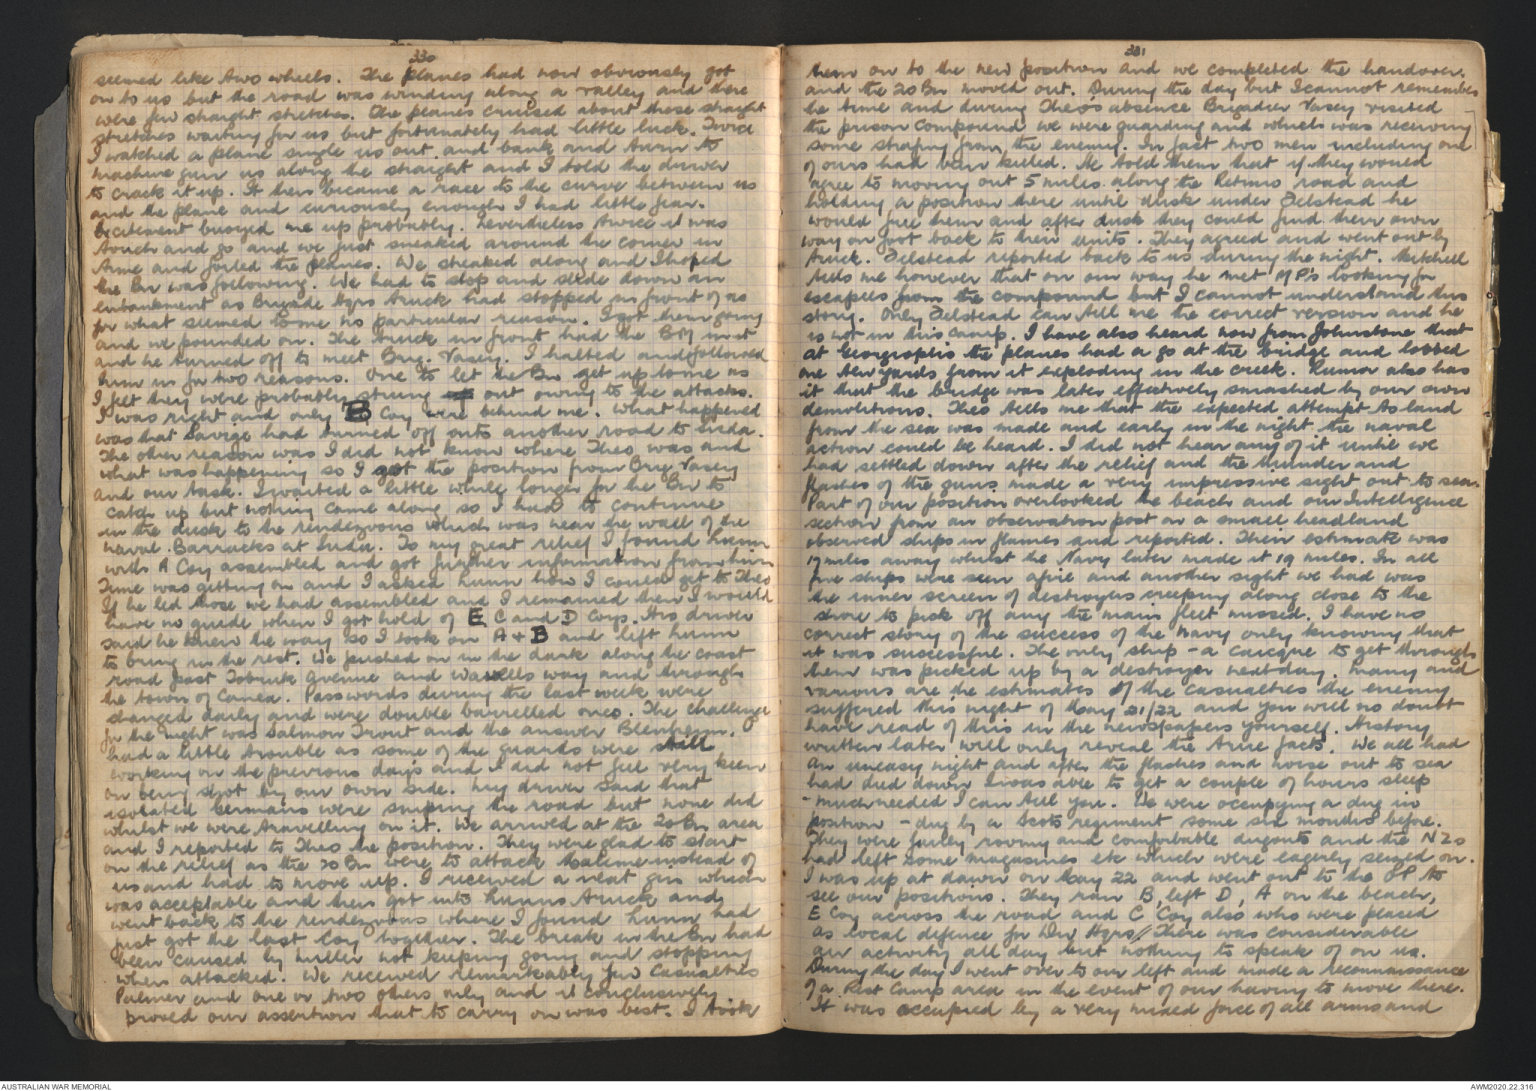 330
seemed like two wheels. The planes had now obviously got
on to us but the road was winding along a valley and there
were few straight stretches. The planes cruised about these straight
stretches waiting for us but fortunately had little luck. Twice
I watched a plane single us out and bank and turn to
machine gun us along the straight and I told the driver
to crack it up. It then became a race to the curve between us
and the plane and curiously enough I had little fear.
Excitement buoyed me up probably. Nevertheless twice it was
touch and go and we just sneaked around the corner in
time and foiled the planes. We streaked along and I hoped
the Bn was following. We had to stop and slide down an
embankment as Brigade Hqrs truck had stopped in front of us
for what seemed to me no particular reason. I got them going
and we pounded on. The truck in front had the BM in it
and he turned off to meet Brig. Vasey. I halted and followed
him in for two reasons. One to let the Bn get up to me as
I felt they were probably strung out owing to the attacks.
I was right and only B Coy were behind me. What happened
was that Savige had turned off onto another road to Suda.
The other reason was I did not know where Theo was and
what was happening so I got the position from Brig Vasey
and our task. I waited a little while longer for the Bn to
catch up but nothing came along so I had to continue
in the dusk to the rendezvous which was near the wall of the
Naval Barracks at Suda. To my great relief I found Lunn
with A Coy assembled and got further information from him
Time was getting on and I asked Lunn how I could get to Theo
If he led those we had assembled and I remained then I would
have no guide when I got hold of E C and D Coys. His driver
said he knew the way so I took on A + B and left Lunn
to bring in the rest. We pushed on in the dark along the coast
road past Tobruk Avenue and Wavells way and through
the town of Canea. Passwords during the last week were
changed daily and were double barrelled ones. The challenge
for the night was Salmon Trout and the answer Blenheim. I
had a little trouble as some of the guards were still
working on the previous days and I did not feel very keen
on being shot by our own side. My driver said that
isolated Germans were sniping the road but none did
whilst we were travelling on it. We arrived at the 20 Bn area
and I reported to Theo the position. They were glad to start
on the relief as the 20 Bn were to attack Maleme instead of
us and had to move up. I received a neat gin which
was acceptable and then got into Lunns truck and
went back to the rendezvous where I found Lunn had
just got the last Coy together. The break in the Bn had
been caused by Miller not keeping going and stopping
when attacked. We received remarkably few casualties
Palmer and one or two others only and it conclusively
proved our assertion that to carry on was best. I took
331
them on to the new position and we completed the handover.
and the 20 Bn moved out. During the day but I cannot remember
the time and during Theo's absence Brigadier Vasey visited
the prison compound we were guarding and which was receiving
some strafing from the enemy. In fact two men including one
of ours had been killed. He told them that if they would
agree to moving out 5 miles along the Retimo road and
holding a position there until dusk under Felstead he
would free them and after dusk they could find their own
way on foot back to their units. They agreed and went out by
truck. Felstead reported back to us during the night. Mitchell
tells me however that on our way he met MP's looking for
escapees from the compound but I cannot understand this
story. Only Felstead can tell me the correct version and he
is not in this camp. I have also heard now from Johnstone that
at Georgioupolis the planes had a go at the bridge and lobbed
one ten yards from it exploding in the creek. Rumor also has
it that the bridge was later effectively smashed by our own
demolitions. Theo tells me that the expected attempt to land
from the sea was made and early in the night the naval
action could be heard. I did not hear any of it until we
had settled down after the relief and the thunder and
flashes of the guns made a very impressive sight out to sea.
Part of our position overlooked the beach and our Intelligence
section from an observation post on a small headland
observed ships in flames and reported. Their estimate was
17 miles away whilst the Navy later made it 19 miles. In all
five ships were seen afire and another sight we had was
the inner screen of destroyers creeping along close to the
shore to pick off any the main fleet missed. I have no
correct story of the success of the Navy only knowing that
it was successful. The only ship - a caicque to get through
them was picked up by a destroyer next day. Many and
various are the estimates of the casualties the enemy
suffered this night of May 21/22 and you will no doubt
have read of this in the newspapers yourself. History
written later will only reveal the true facts. We all had
an uneasy night and after the flashes and noise out to sea
had died down I was able to get a couple of hours sleep
- much needed I can tell you. We were occupying a dug in
position - dug by a Scots regiment some six months before.
They were fairly roomy and comfortable dugouts and the NZs
had left some magazines etc which were eagerly seized on.
I was up at dawn on May 22 and went out to the OP to
see our positions. They ran B, left D, A on the beach,
E Coy across the road and C Coy also who were placed
as local defence for Div Hqrs. There was considerable
air activity all day but nothing to speak of on us.
During the day I went over to our left and made a reconnaissance
of a Rest Camp area in the event of our having to move there.
It was occupied by a very mixed force of all arms and
AUSTRALIAN WAR MEMORIAL
AWM2020.22.316